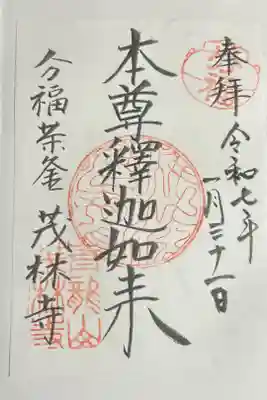 奉拝
令和七年
一月三十一日
本尊釋迦如来
分福茶釜
茂林寺